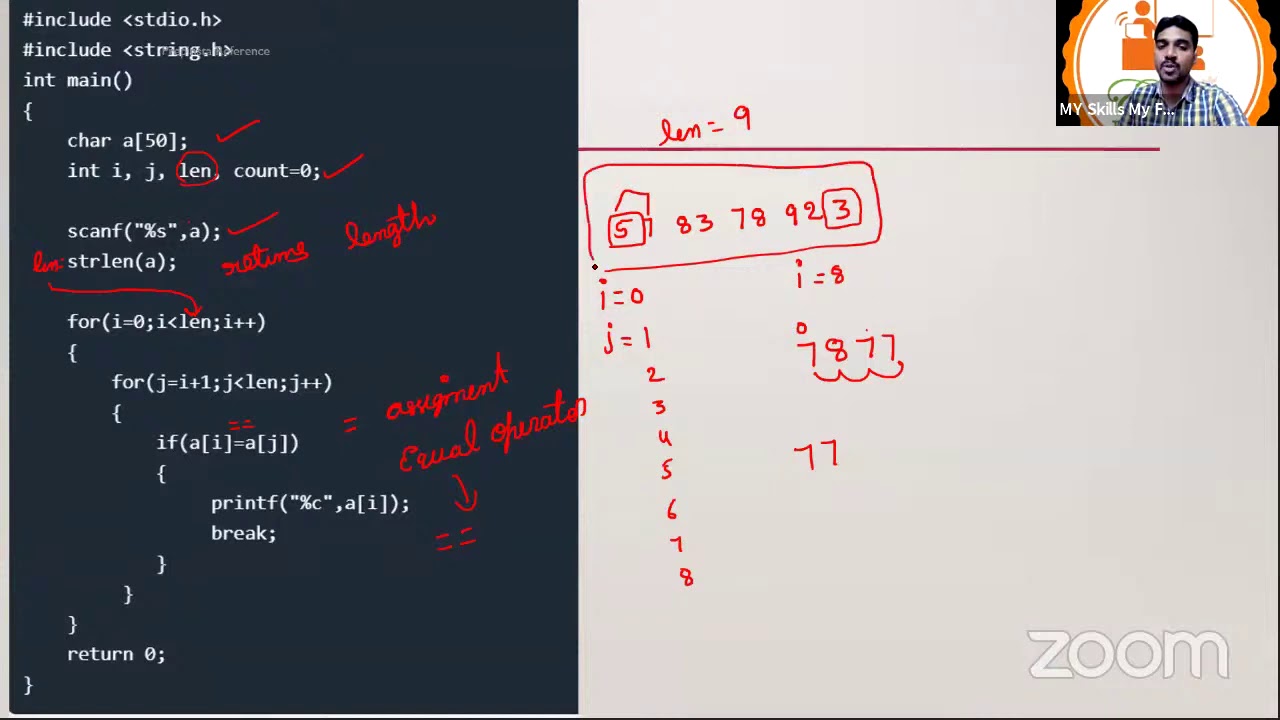 #include <stdio.h>
#include <string.h>
int main()
{
char a[50];
int i, j, len, count=0;
scanf("%s",a);
len= strlen(a);
returns length
for(i=0;i<len;i++)
{
for(j=i+1;j<len;j++)
{
==
if(a[i]=a[j])
{
printf("%c",a[i]);
break;
}
}
}
return 0;
}
= assigment
Equal operator
==
len = 9
57 83 78 923
i = 0
i = 8
j = 1
2
3
4
5
6
7
8
0
7877
77
MY Skills My F...
zoom